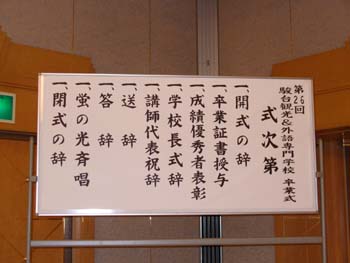 第26回
駿台観光&外語専門学校 卒業式
式次第
一、開式の辞
一、卒業証書授与
一、成績優秀者表彰
一、学校長式辞
一、講師代表祝辞
一、送辞
一、答辞
一、蛍の光斉唱
一、閉式の辞